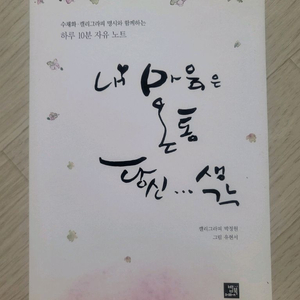 수채화·캘리그라피 명시와 함께하는
하루 10분 자유 노트
내 마음은
온통
당신...생각
캘리그라피 박정원
그림 유현서